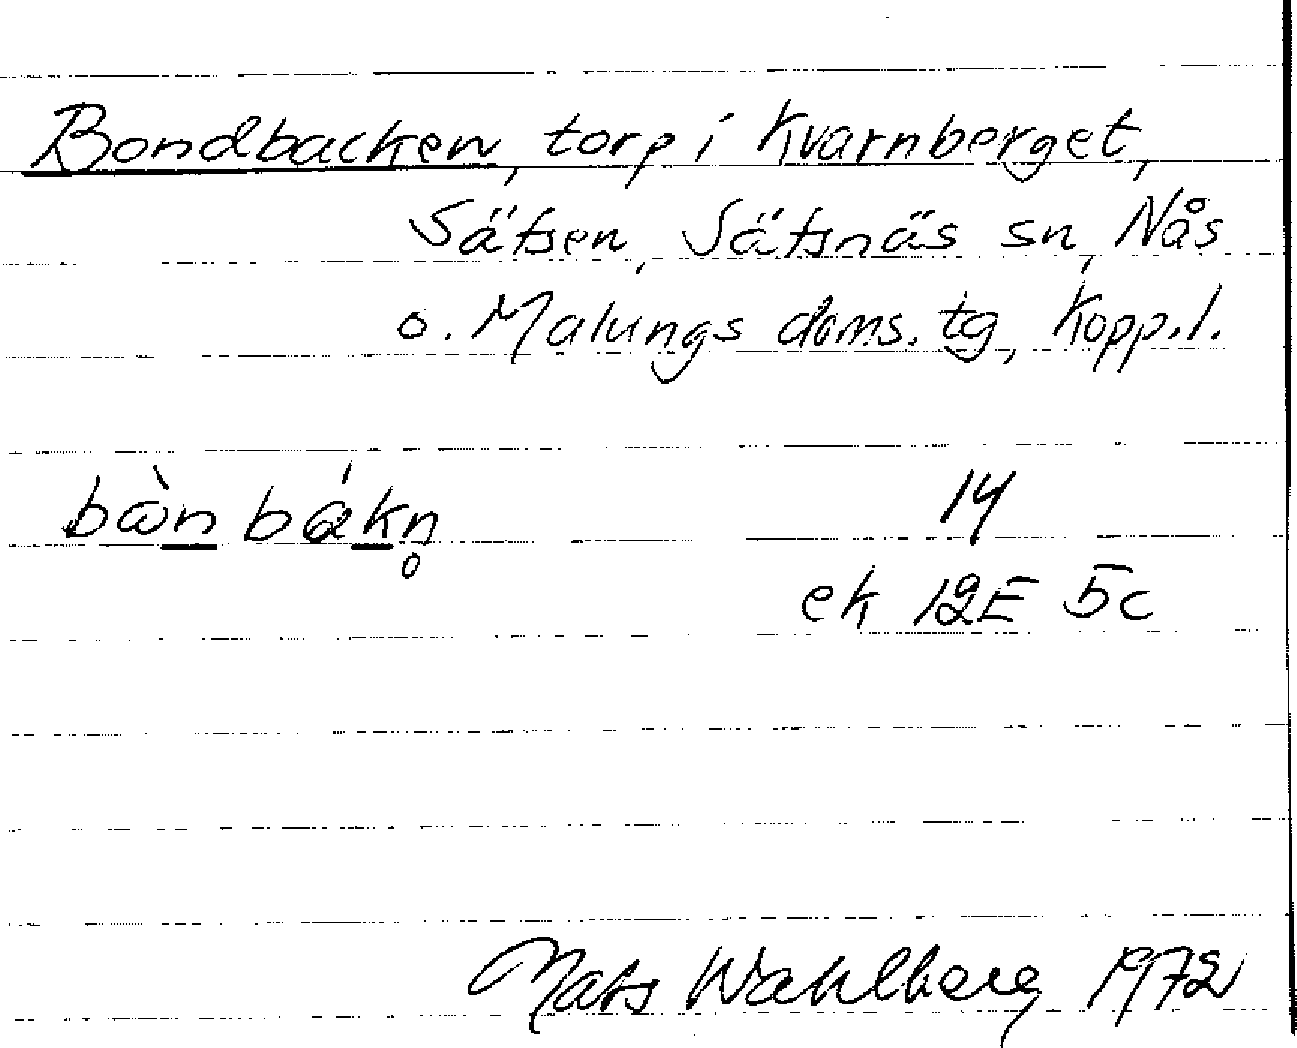 Bondbacken, torp i Kvarnberget,
Sätsen, Sätsnäs sn, Nås
o. Malungs doms. tg, Kopp.l.
bὼn bákn̥ 14
ek 12E 5c
Mats Wahlberg 1972